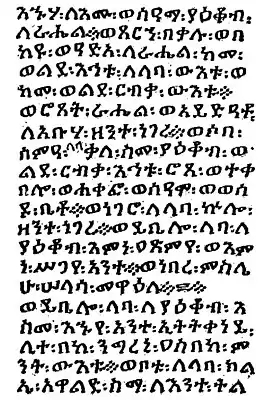 እኅሃ፡ለእሙ፡ወሰዓማ፡ያዕቆብ፡
ለራሔል፨ወጸርኀ፡በቃሉ፡ወበ
ከየ፡ወዓድአ፡ለራሔል፡ከመ፡
ወልደ፡እኅቱ፡ለላባ፡ውእቱ፡ወ
ከመ፡ወልደ፡ርብቃ፡ውእቱ፨
ወሮጸት፡ራሔል፡ወአይድዓቶ፡
ለአቡሃ፡ዘንተ፡ነገረ፨ወሶበ፡
ሰምዓ፡ላባ፡ቃለ፡ስመ፡ያዕቆብ፡ወ
ልደ፡ርብቃ፡እኅቱ፡ሮጸ፡ወተቀ
በሎ፡ወሐቀፎ፡ወሰዓሞ፡ወወሰ
ዶ፡ቤቶ፨ወነገሮ፡ለላባ፡ኵሎ፡
ዘንተ፡ነገረ፨ወይቤሎ፡ላባ፡ለ
ያዕቆብ፡እምነ፡ዐጽምየ፡ወእም
ነ፡ሥጋየ፡አንተ፨ወነበረ፡ምስሌ
ሁ፡ሠላሳ፡መዋዕለ፨
ወይቤሎ፡ላባ፡ለያዕቆብ፡እ
ስመ፡እኁየ፡አንተ፡ኢትትቀነይ፡
ሊተ፡በከ፡ንግረኒ፡ዐስበከ፡ም
ንት፡ውእቱ፨ወቦቱ፡ለላባ፡ክል
ኤ፡አዋልድ፡ስማ፡ለእንተ፡ትል